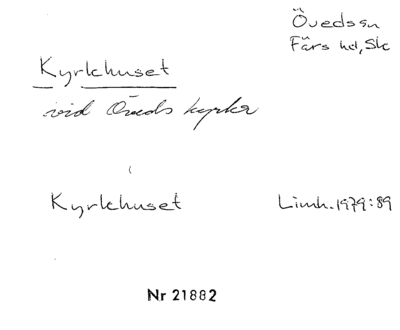 Öveds sn
Färs hd, Sk
Kyrkhuset
vid Öveds kyrka
Kyrkhuset Limh. 1979:89
Nr 21882